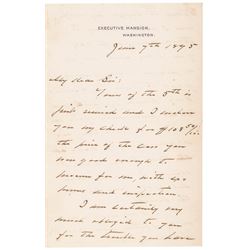 EXECUTIVE MANSION,
WASHINGTON.
June 7th 1895
My dear Sir:
Yours of the 5th is
just received and I enclose
you my check for $108 50/100
the price of the case you
was good enough to
procure for me, with
and inspection.
I am certainly very
much obliged to you
for the trouble you have